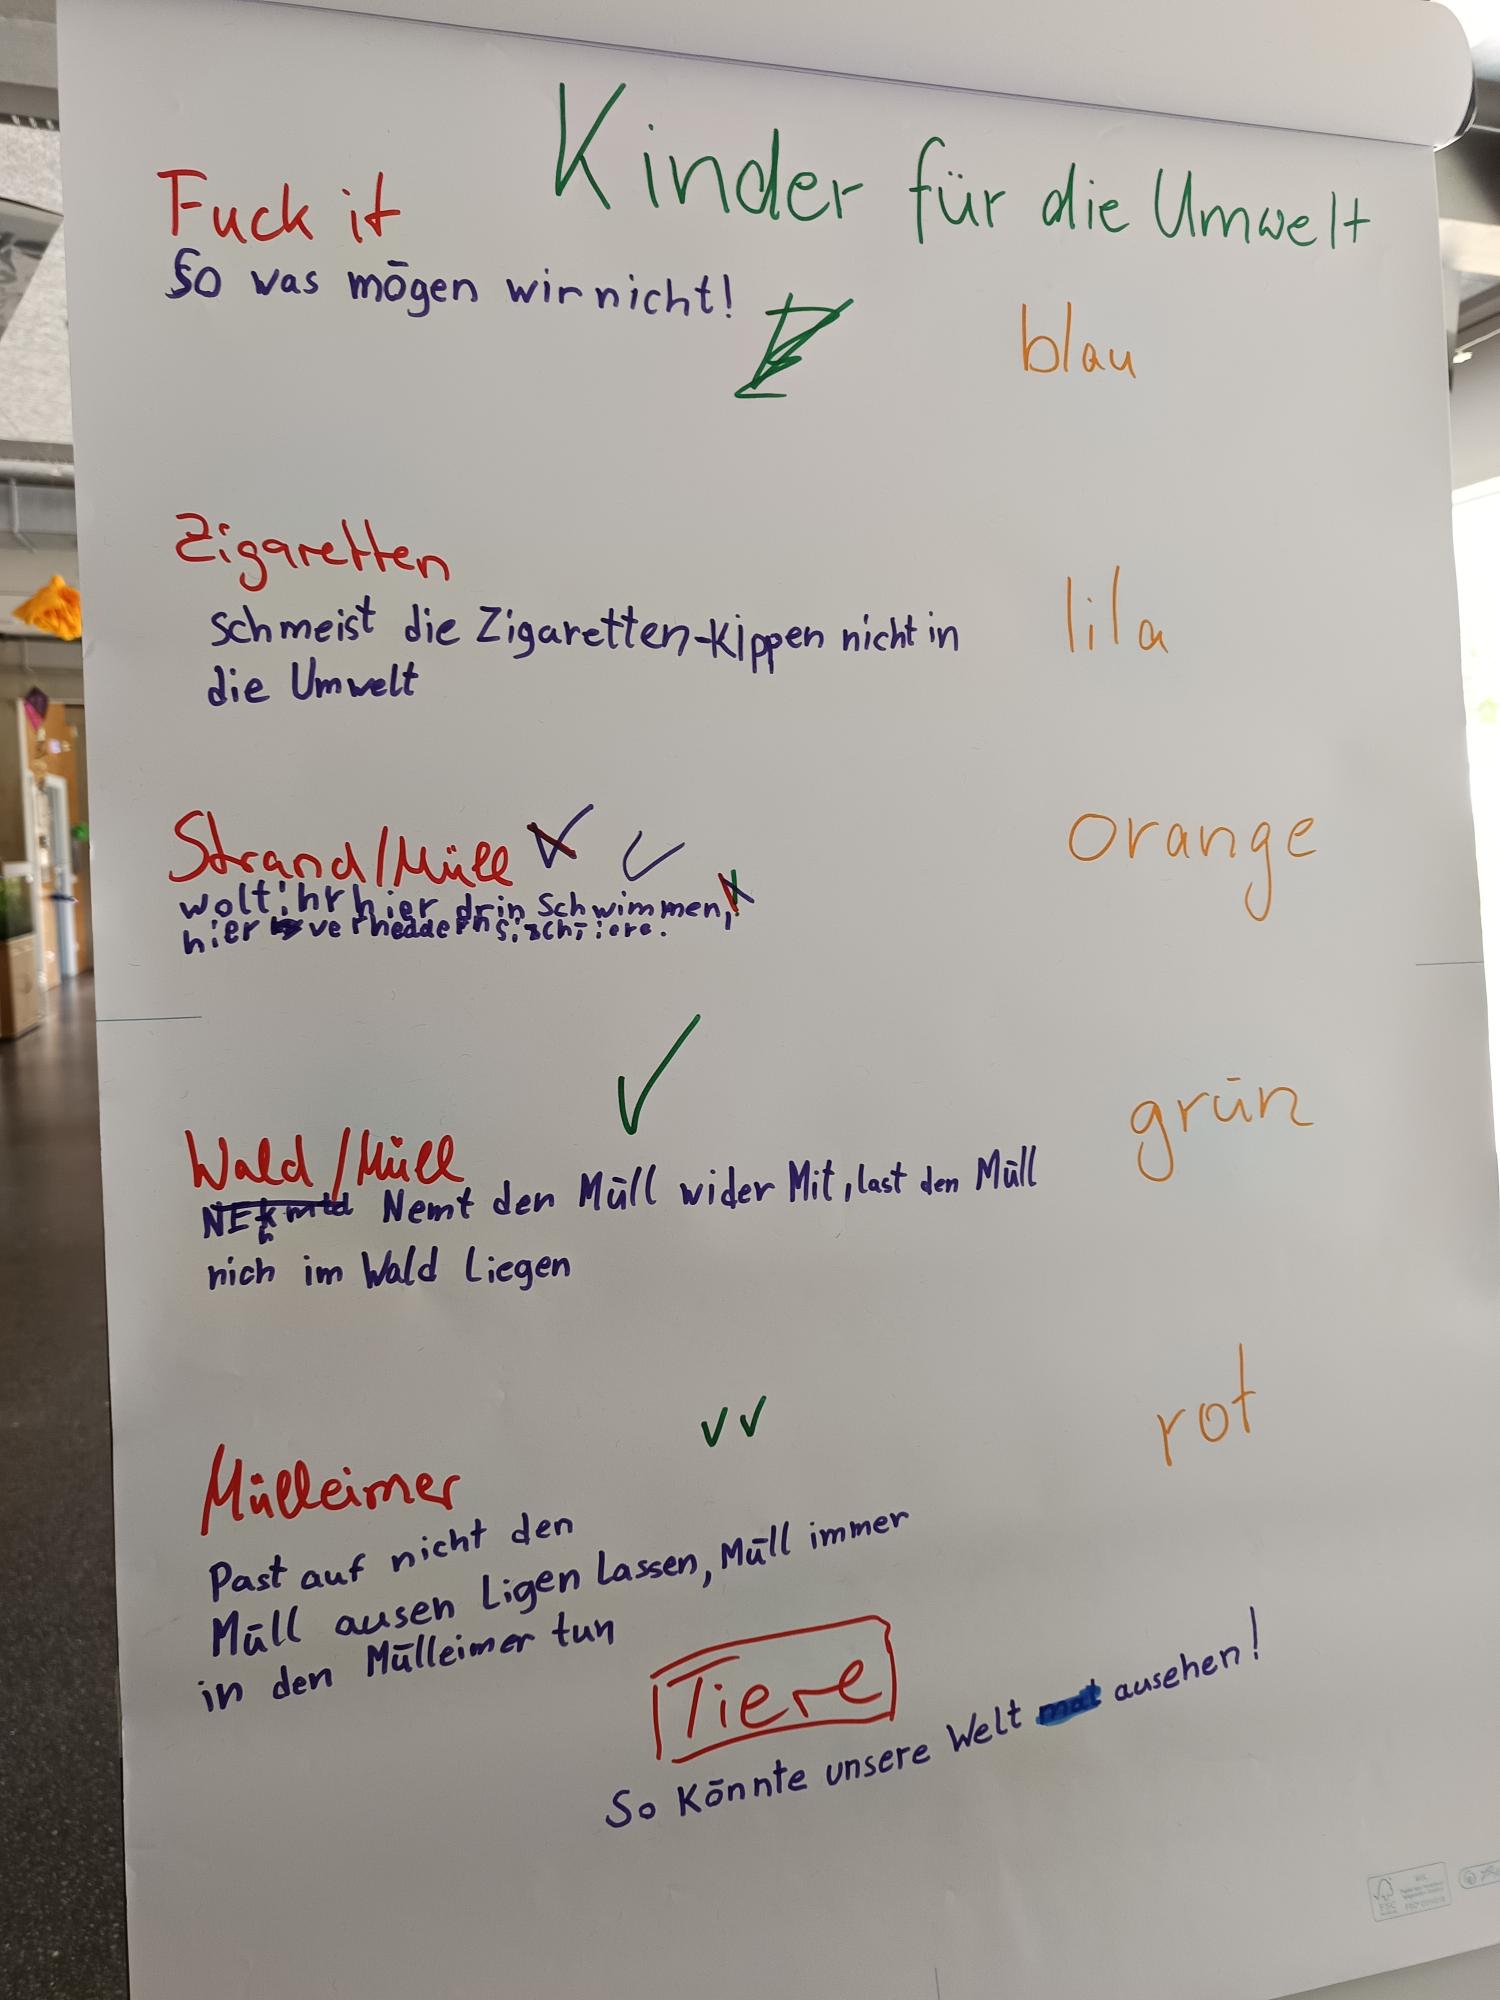 Kinder für die Umwelt
Fuck it
So was mögen wir nicht!
blau
Zigaretten
schmeist die Zigaretten-Kippen nicht in
die Umwelt
lila
Strand/Müll
wolt ihr hier drin Schwimmen,
hier verheddern sisch tiere.
orange
Wald/Müll
Nemt den Müll wider Mit, last den Müll
nich im Wald Liegen
grün
Mülleimer
Past auf nicht den
Müll ausen Ligen Lassen, Müll immer
in den Mülleimer tun
rot
Tiere
So Könnte unsere Welt ausehen!
FSC